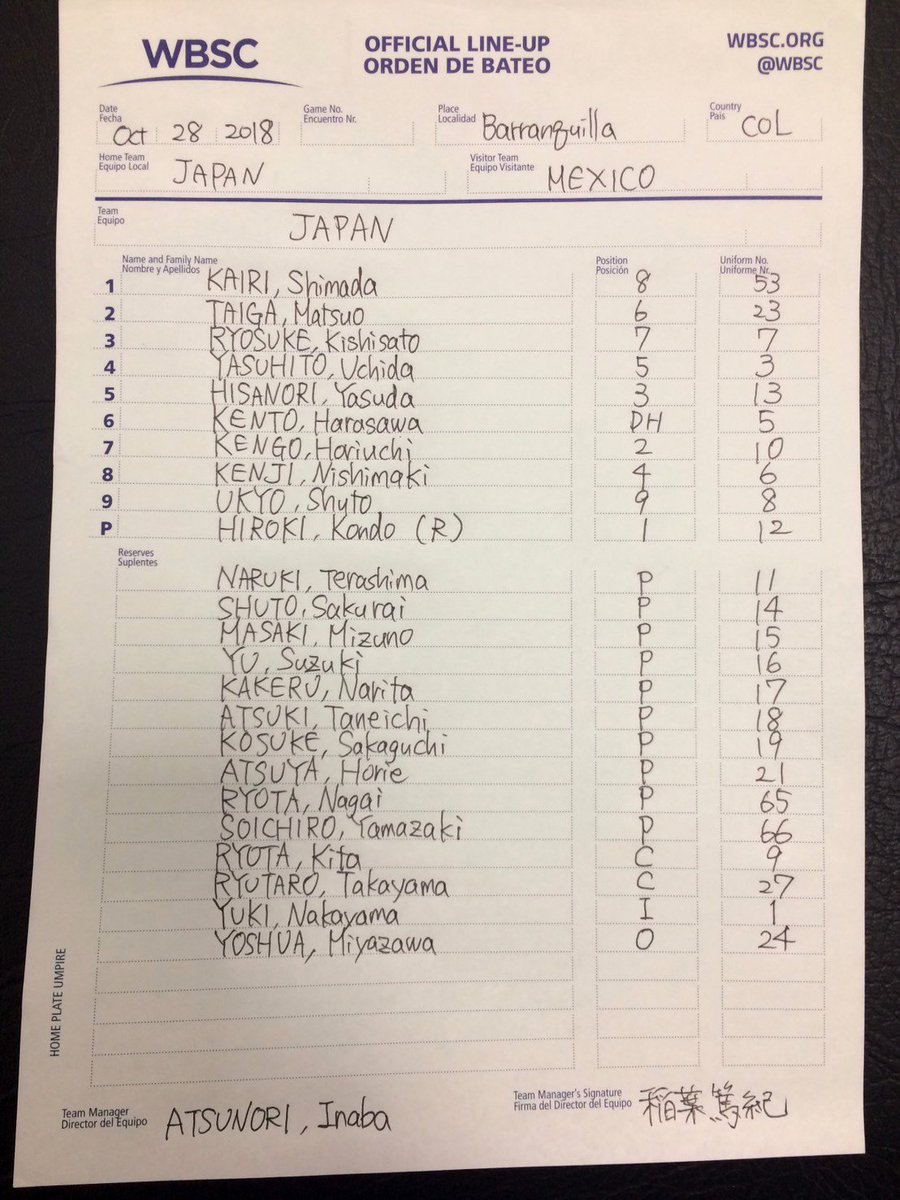 WBSC
OFFICIAL LINE-UP
ORDEN DE BATEO
WBSC.ORG
@WBSC
Date
Fecha
Oct 28 2018
Game No.
Encuentro Nr.
Place
Localidad
Barranquilla
Country
País
COL
Home Team
Equipo Local
JAPAN
Visitor Team
Equipo Visitante
MEXICO
Team
Equipo
JAPAN
Name and Family Name
Nombre y Apellidos
Position
Posición
Uniform No.
Uniforme Nr.
1 KAIRI, Shimada 8 53
2 TAIGA, Matsuo 6 23
3 RYOSUKE, Kishisato 7 7
4 YASUHITO, Uchida 5 3
5 HISANORI, Yasuda 3 13
6 KENTO, Harasawa DH 5
7 KENGO, Horiuchi 2 10
8 KENJI, Nishimaki 4 6
9 UKYO, Shuto 9 8
P HIROKI, Kondo (R) 1 12
Reserves
Suplentes
NARUKI, Terashima P 11
SHUTO, Sakurai P 14
MASAKI, Mizuno P 15
YU, Suzuki P 16
KAKERU, Narita P 17
ATSUKI, Taneichi P 18
KOSUKE, Sakaguchi P 19
ATSUYA, Horie P 21
RYOTA, Nagai P 65
SOICHIRO, Yamazaki P 66
RYOTA, Kita C 9
RYUTARO, Takayama C 27
YUKI, Nakayama I 1
YOSHUA, Miyazawa O 24
HOME PLATE UMPIRE
Team Manager
Director del Equipo
ATSUNORI, Inaba
Team Manager's Signature
Firma del Director del Equipo
稲葉篤紀